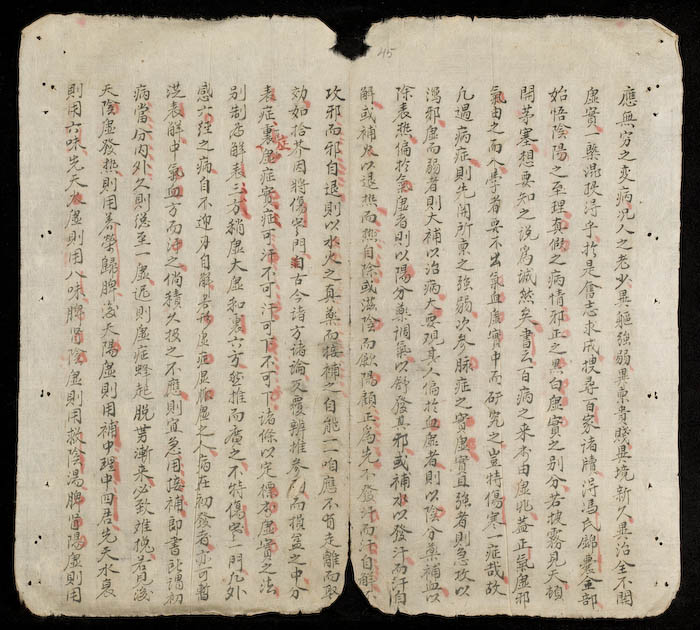 應無穷之变病况人之老少異軀強弱異禀貴賤異境新久異治全不開
虛實一藥混投浔乎於是奮志求成搜尋百家諸牘浔馮氏錦囊全部
始悟陰陽之至理真假之病情邪正之黑白虛實之别分若披霧見天頓
開茅塞想要知之說爲誠然矣書云百病之来 由虛兆盖正氣虛邪
氣由之而入學者要不出氣血虛實中而研究之豈特傷寒一症哉故
凡遇病症則先開所禀之強弱次參脉症之實虛實且強者則急攻以
瀉邪虛而弱者則大補以治病大要观其人偏於血虛者則以陰分藥補血以
除表热偏於氣虛者則以陽分藥調氣以舒發其邪或補水以發汗而汗自
解或補火以退热而热自除或滋陰而歛陽顧正爲先不發汗而汗自解不
攻邪而邪自退則以水火之真藥而接補之自能一二咱應不肯走離而取
効如拾芥因将傷寒門自古今诸方诸論反覆辨推参 而損益之中分
表症裏症虛症實症可汗不可汗可下不可下诸條以定標本虛實之法
别制為解表三方稍虛大虛和裏六方㔟推而廣之不特傷寒一門凡外
感六淫之病自不迎刃自解若 虛症虛脉虛之人病在初發者亦可暫
洗表解中氣血方而沖之倘積久投之不應則宜急用接補即書所謂初
病當分内外久則总至一虛迟則虛症蜂起脱势漸来必致难挽若見後
天陰虛發热則用養榮歸脾後天陽虛則用補中理中四君先天水衰
則用六味先天火虛則用八味脾腎陰虛則用救陰湯脾胃陽虛則用
45